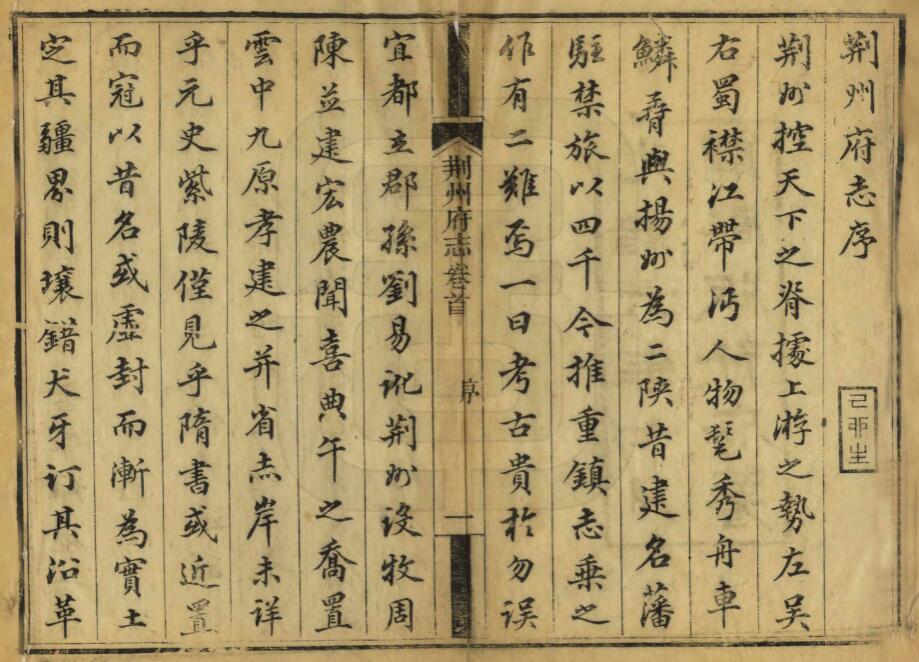 荆州府志序
己卯生
荆州控天下之脊據上游之勢左吴
右蜀襟江帶沔人物髦秀舟車
鱗脊與揚州為二陝昔建名藩
駐禁旅以四千今推重鎮志乗之
作有二難焉一曰考古貴於勿误
荆州府志卷首
序
一
宜都立郡孫劉易訛荆州設牧周
陳並建宏農聞喜典午之喬置
雲中九原孝建之并省志岸未详
乎元史紫陵僅見乎隋書或近置
而冠以昔名或虚封而漸為實土
定其疆界則壤錯犬牙订其沿革